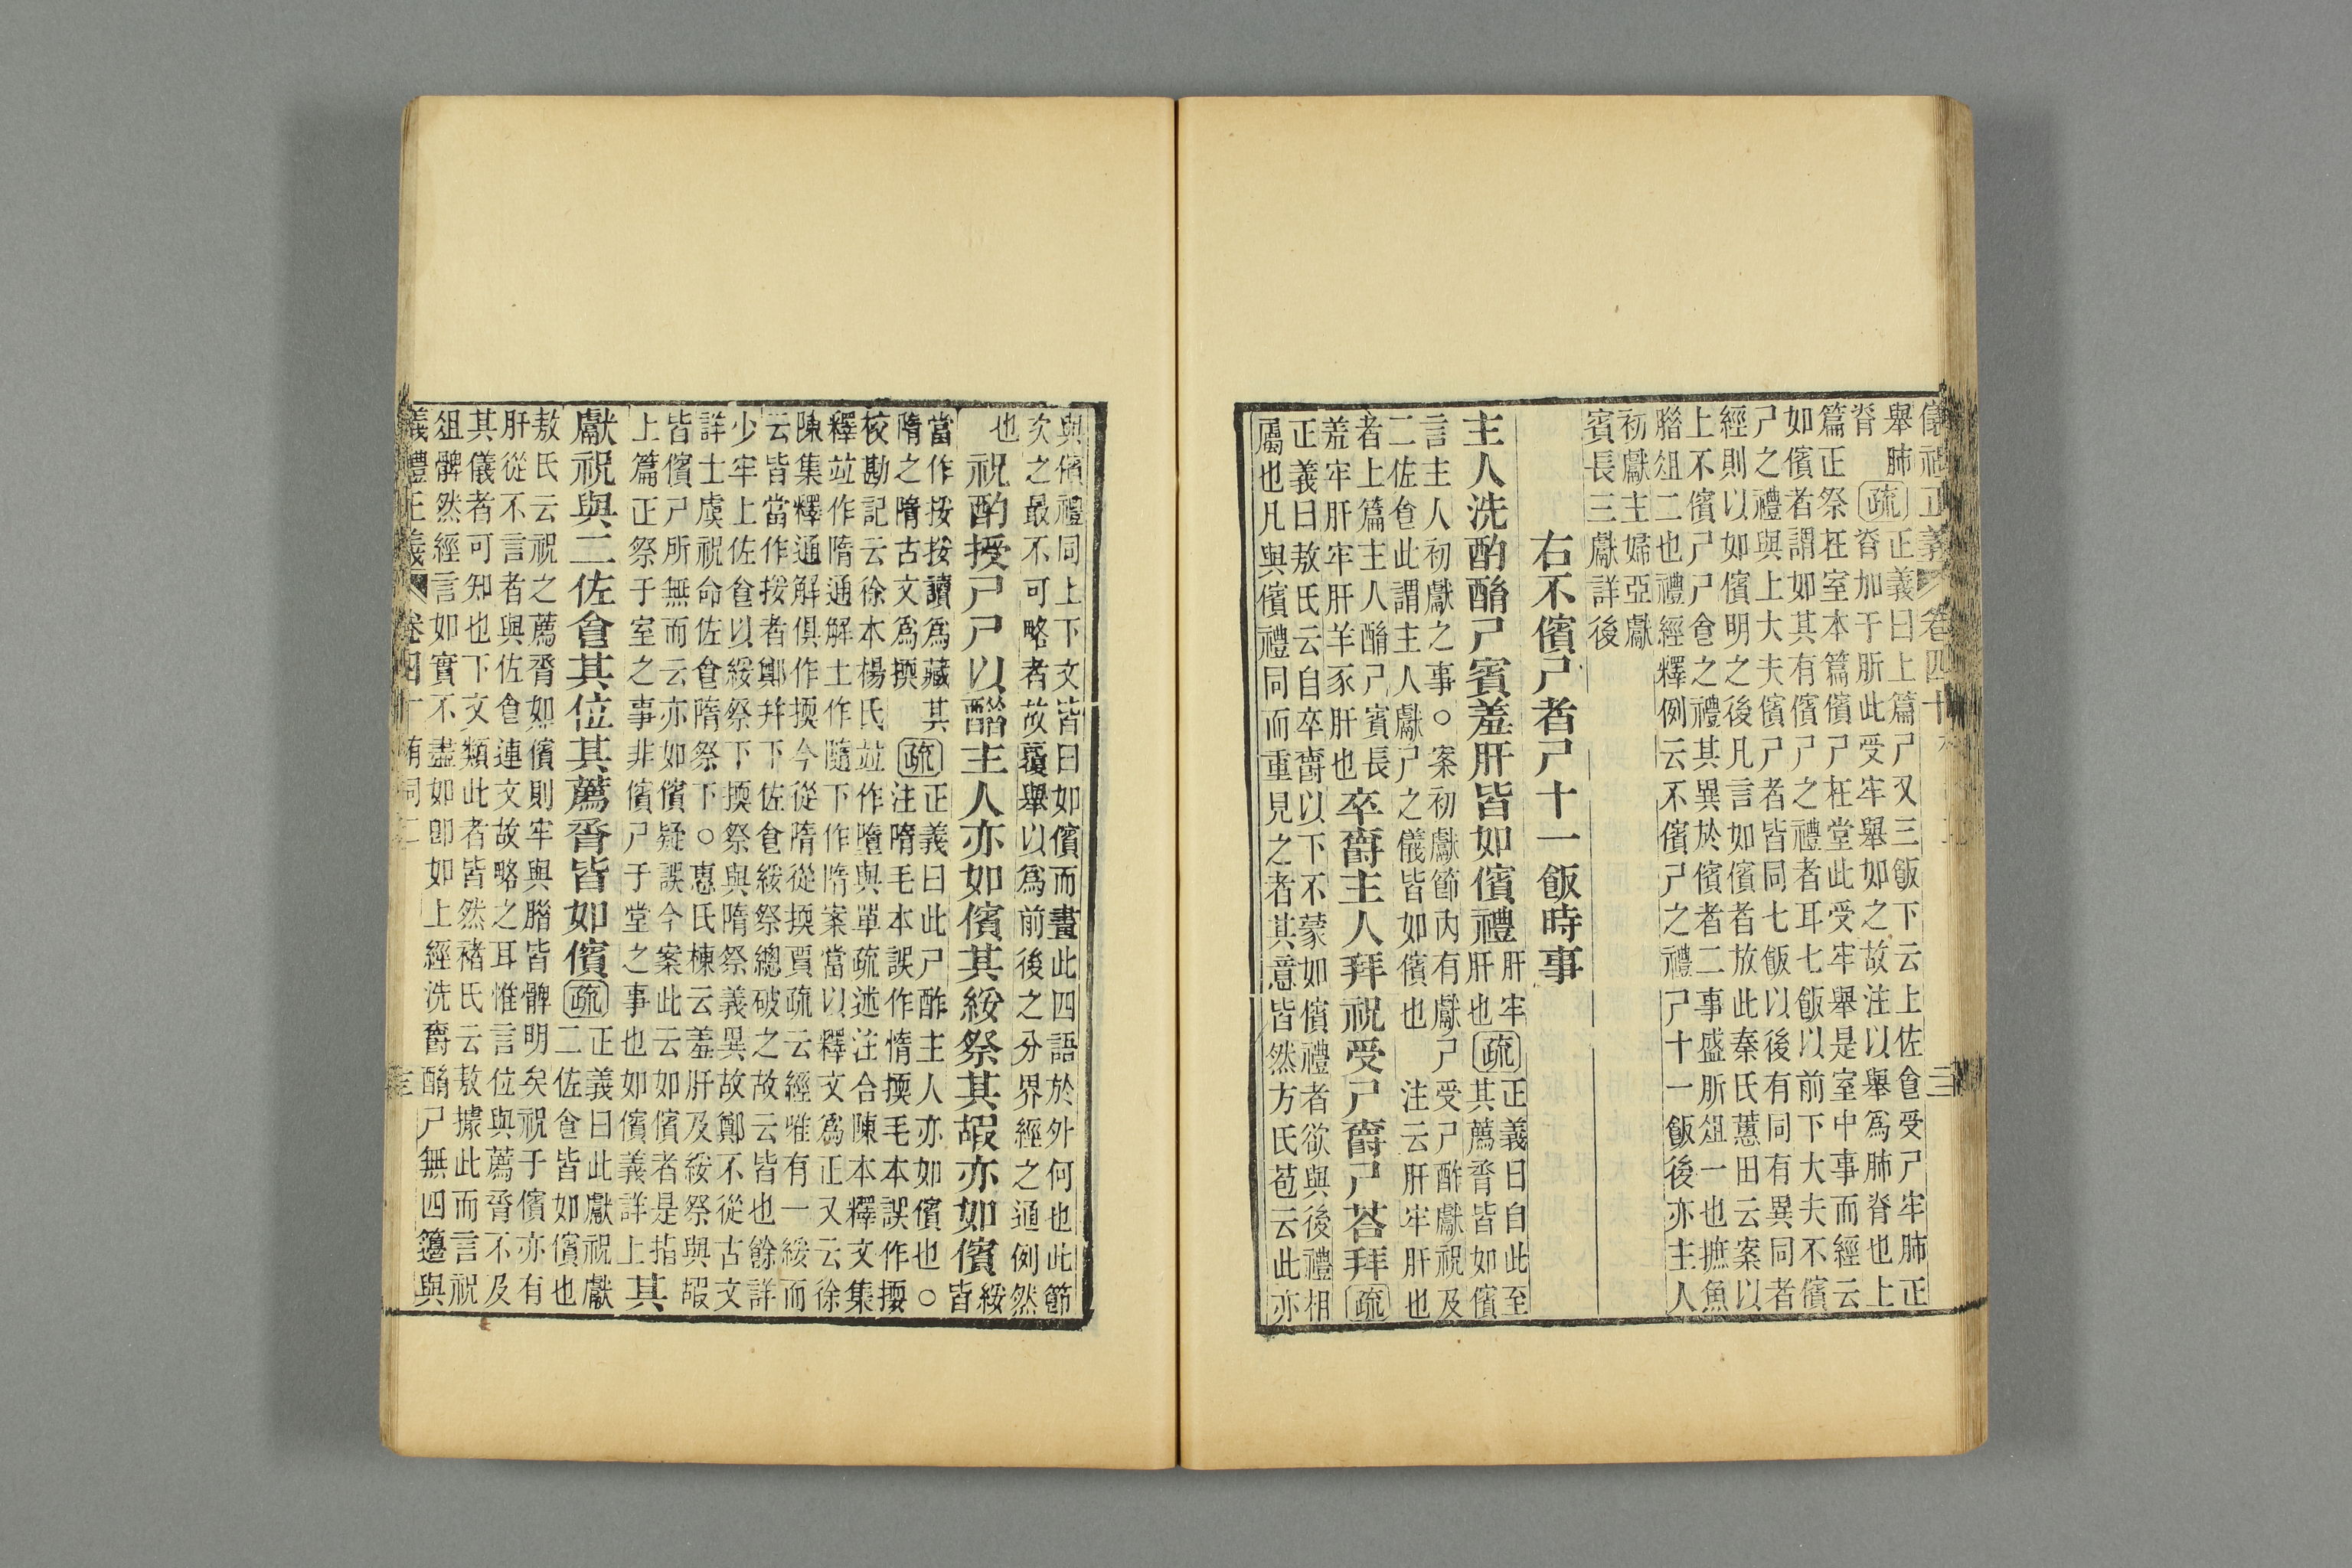 儀禮正義 卷四十
舉肺疏正義曰上篇尸又三飯下云上佐食受尸牢肺正
脊 脊加于肵此受牢舉如之故注以舉爲肺脊也上
篇正祭在室本篇儐尸在堂此受牢舉是室中事而經云
如儐者謂如其有儐尸之禮者耳七飯以前下大夫不儐
尸之禮與上大夫儐尸者皆同七飯以後有同有異同者
經則以如儐明之後凡言如儐者放此秦氏蕙田云案以
上不儐尸尸食之禮其異於儐者二事盛肵俎一也摭魚
腊俎二也禮經釋例云不儐尸之禮尸十一飯後亦主人
初獻主婦亞獻
賓長三獻詳後
右不儐尸者尸十一飯時事
主人洗酌酳尸賓羞肝皆如儐禮肝牢
肝也疏正義曰自此至
其薦脀皆如儐
言主人初獻之事○案初獻節內有獻尸受尸酢獻祝及
二佐食此謂主人獻尸之儀皆如儐也 注云肝牢肝也
者上篇主人酳尸賓長
羞牢肝牢肝羊豕肝也
卒爵主人拜祝受尸爵尸荅拜疏
正義曰敖氏云自卒爵以下不蒙如儐禮者欲與後禮相
屬也凡與儐禮同而重見之者其意皆然方氏苞云此亦
與儐禮同上下文皆曰如儐而畫此四語於外何也此節
次之最不可略者故覆舉以爲前後之分界經之通例然
也
祝酌授尸尸以醋主人亦如儐其綏祭其嘏亦如儐綏
皆
當作挼挼讀爲藏其
隋之隋古文爲擩疏正義曰此尸酢主人亦如儐也○
注隋毛本誤作惰擩毛本誤作擩
校勘記云徐本楊氏竝作墮與單疏述注合陳本釋文集
釋竝作隋通解土作隨下作隋案當以釋文爲正又云徐
陳集釋通解俱作擩今從隋從擩賈疏云經唯有一綏而
云皆當作挼者鄭幷下佐食綏祭總破之故云皆也餘詳
少牢上佐食以綏祭下擩祭與隋祭義異故鄭不從古文
詳士虞祝命佐食隋祭下○惠氏棟云羞肝及綏祭與嘏
皆儐尸所無而云亦如儐疑誤今案此云如儐者是指
上篇正祭于室之事非儐尸于堂之事也如儐義詳上
其
獻祝與二佐食其位其薦脀皆如儐疏正義曰此獻祝獻
二佐食皆如儐也
敖氏云祝之薦脀如儐則牢與腊皆髀明矣祝于儐亦有
肝從不言者與佐食連文故略之耳惟言位與薦脀不及
其儀者可知也下文類此者皆然褚氏云敖據此而言祝
俎髀然經言如實不盡如卽如上經洗爵酳尸無四籩與
儀禮正義 卷四十 有司二